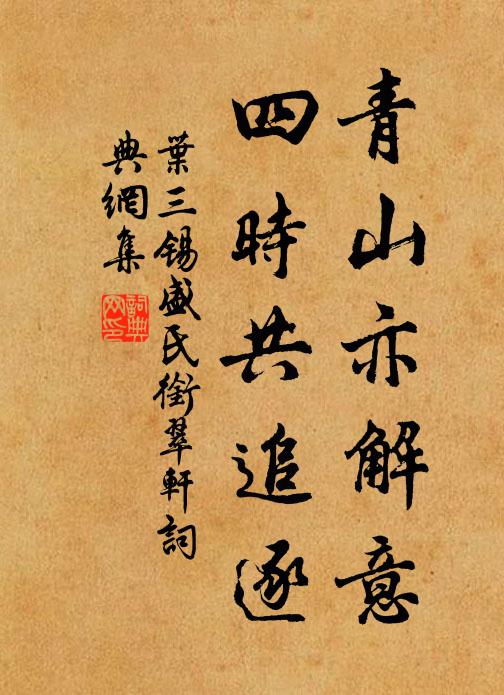 青山亦解意
四時共追逐
葉三錫盛氏銜翠軒詞
典網集
詞典
网印